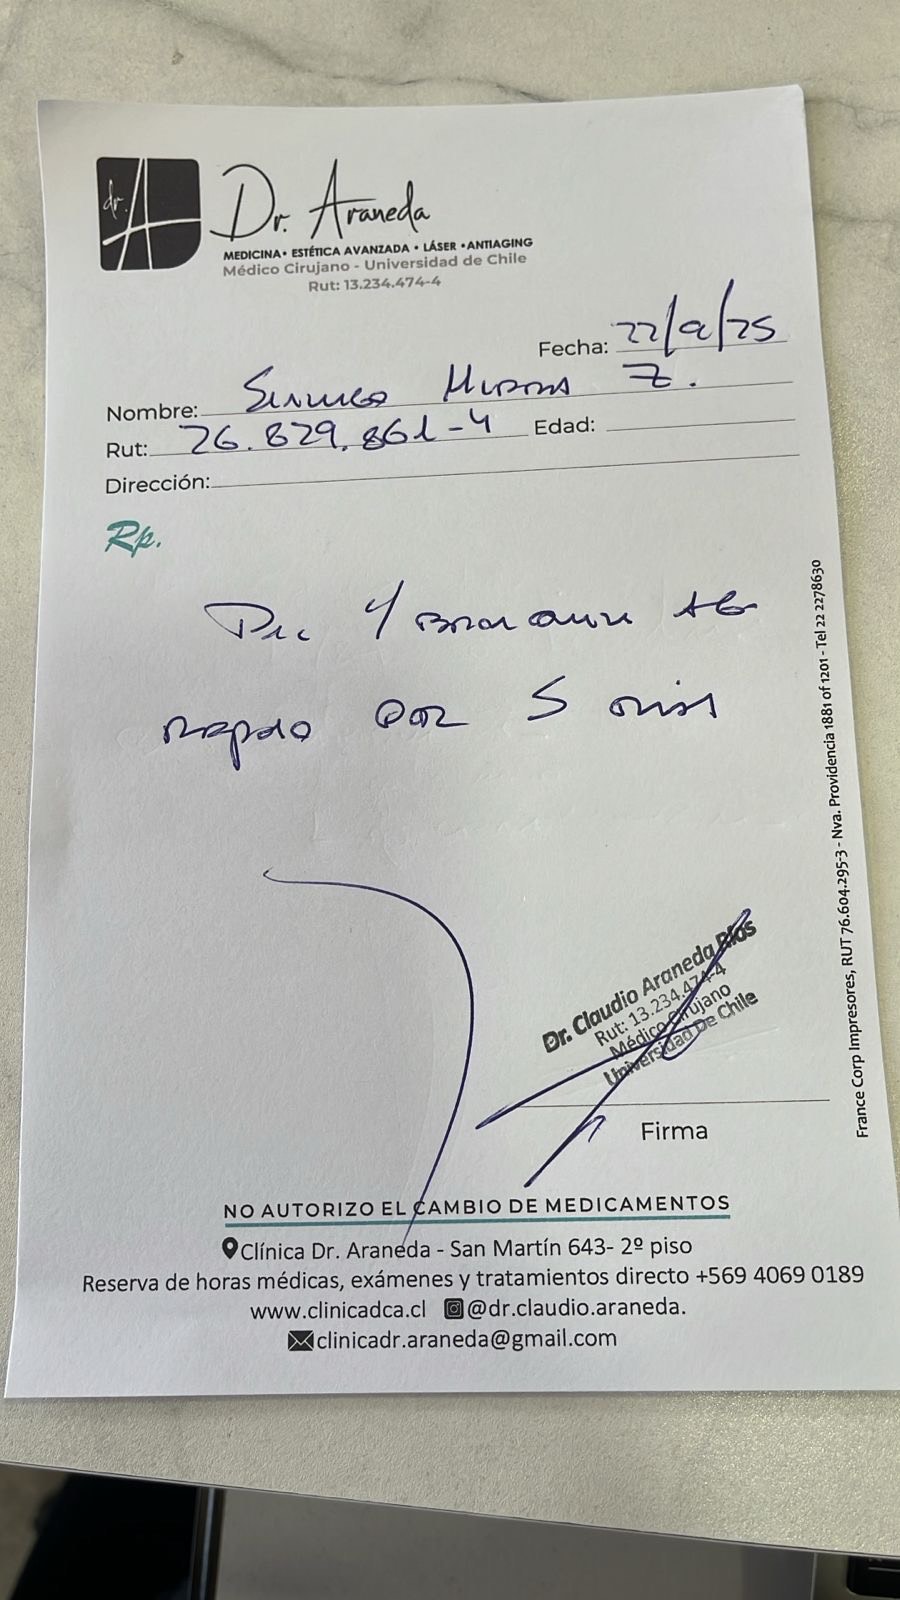 dr. A
Dr. Araneda
MEDICINA • ESTÉTICA AVANZADA • LÁSER • ANTIAGING
Médico Cirujano - Universidad de Chile
Rut: 13.234.474-4
Fecha: 22/9/25
Nombre: Z.
Rut: 26.829.861-4 Edad:
Dirección:
Rp.
reposo por 5 días
Dr. Claudio Araneda Ríos
Rut: 13.234.474-4
Médico Cirujano
Universidad De Chile
Firma
NO AUTORIZO EL CAMBIO DE MEDICAMENTOS
Clínica Dr. Araneda - San Martín 643- 2º piso
Reserva de horas médicas, exámenes y tratamientos directo +569 4069 0189
www.clinicadca.cl @dr.claudio.araneda.
clinicadr.araneda@gmail.com
France Corp Impresores, RUT 76.604.295-3 - Nva. Providencia 1881 of 1201 - Tel 22 2278630